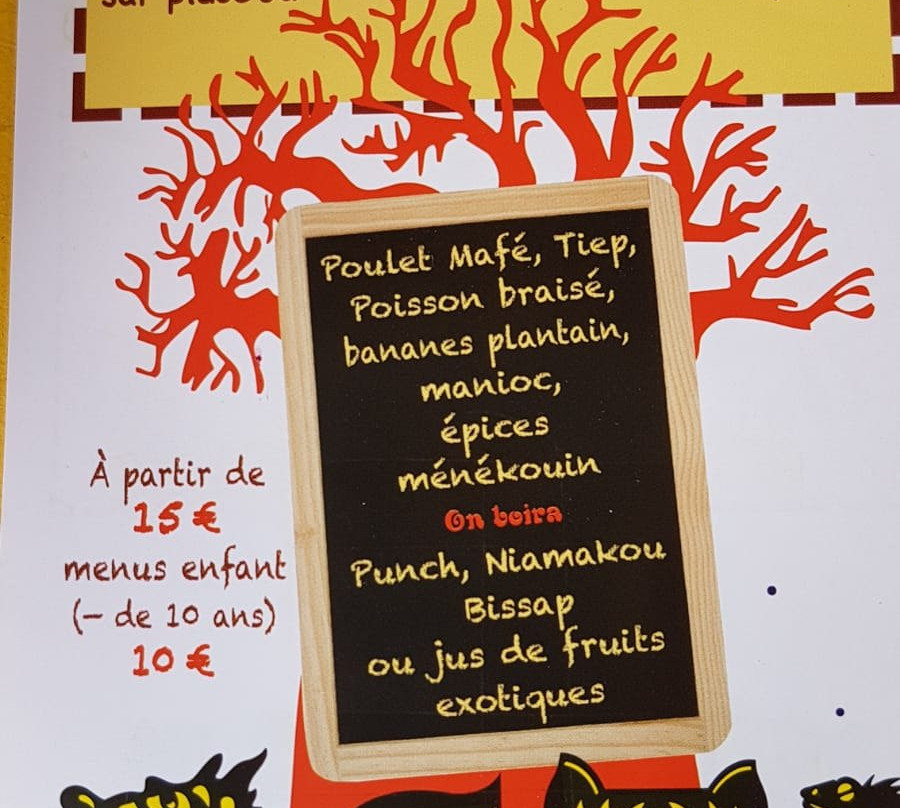 sur place ou
Poulet Mafé, Tiep,
Poisson braisé,
bananes plantain,
manioc,
épices
ménékouin
On boira
Punch, Niamakou
Bissap
ou jus de fruits
exotiques
À partir de
15 €
menus enfant
(- de 10 ans)
10 €